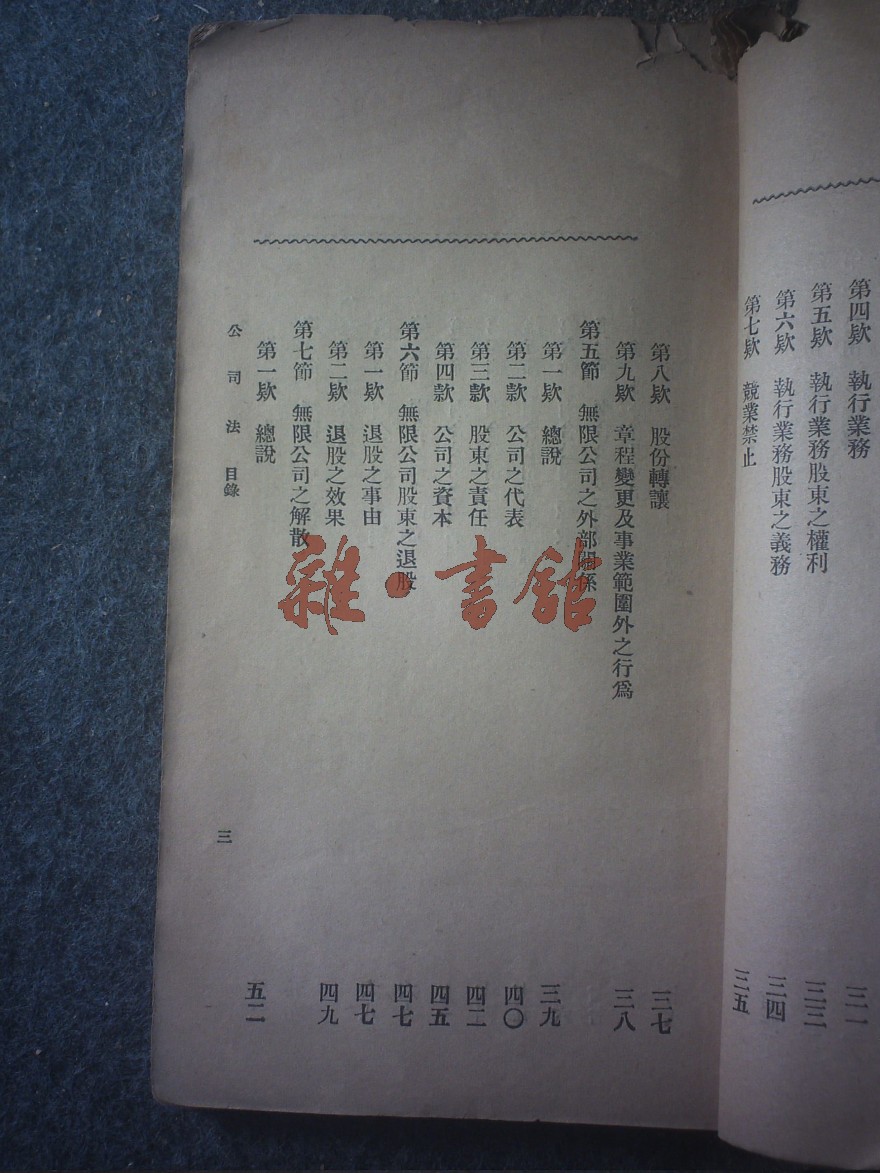 第四欵 執行業務 三一
第五欵 執行業務股東之權利 三三
第六欵 執行業務股東之義務 三四
第七欵 競業禁止 三五
第八欵 股份轉讓 三七
第九欵 章程變更及事業範圍外之行爲 三八
第五節 無限公司之外部關係
第一欵 總說 三九
第二款 公司之代表 四〇
第三款 股東之責任 四二
第四款 公司之資本 四五
第六節 無限公司股東之退股 四七
第一欵 退股之事由 四七
第二欵 退股之效果 四九
第七節 無限公司之解散
第一欵 總說 五二
公司法 目錄 三
雜·書館